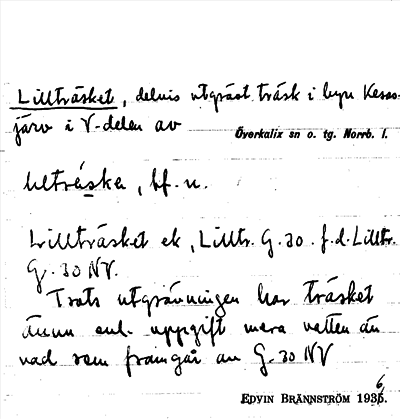 Lillträsket, delvis utgräst träsk i byn Kesas-
järv i V-delen av
Överkalix sn o. tg. Norrb. l.
lɩlträ́ska, bf. n.
Lillträsket ek, Lilltr. G. 30 f.d. Lilltr.
G. 30 NV.
Trots utgrävningen har träsket
ännu enl. uppgift mera vatten än
vad som framgår av G. 30 NV
EDVIN BRÄNNSTRÖM 1936.